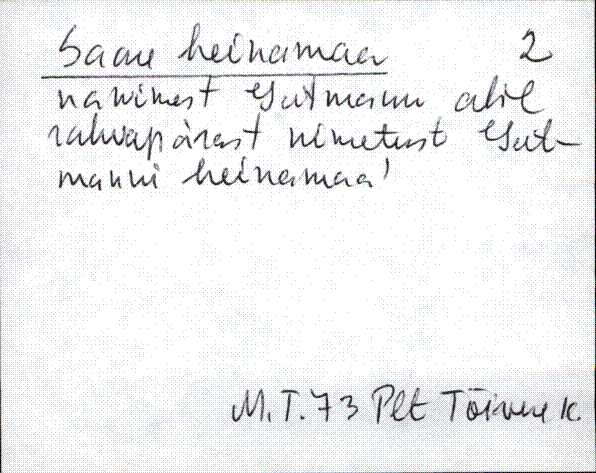 Saare heinamaa 2
nawimest Gutmanni abil
rahvapärast nimetust Gut-
manni heinamaa'
M.T. 73 Plt Tõirvere k.